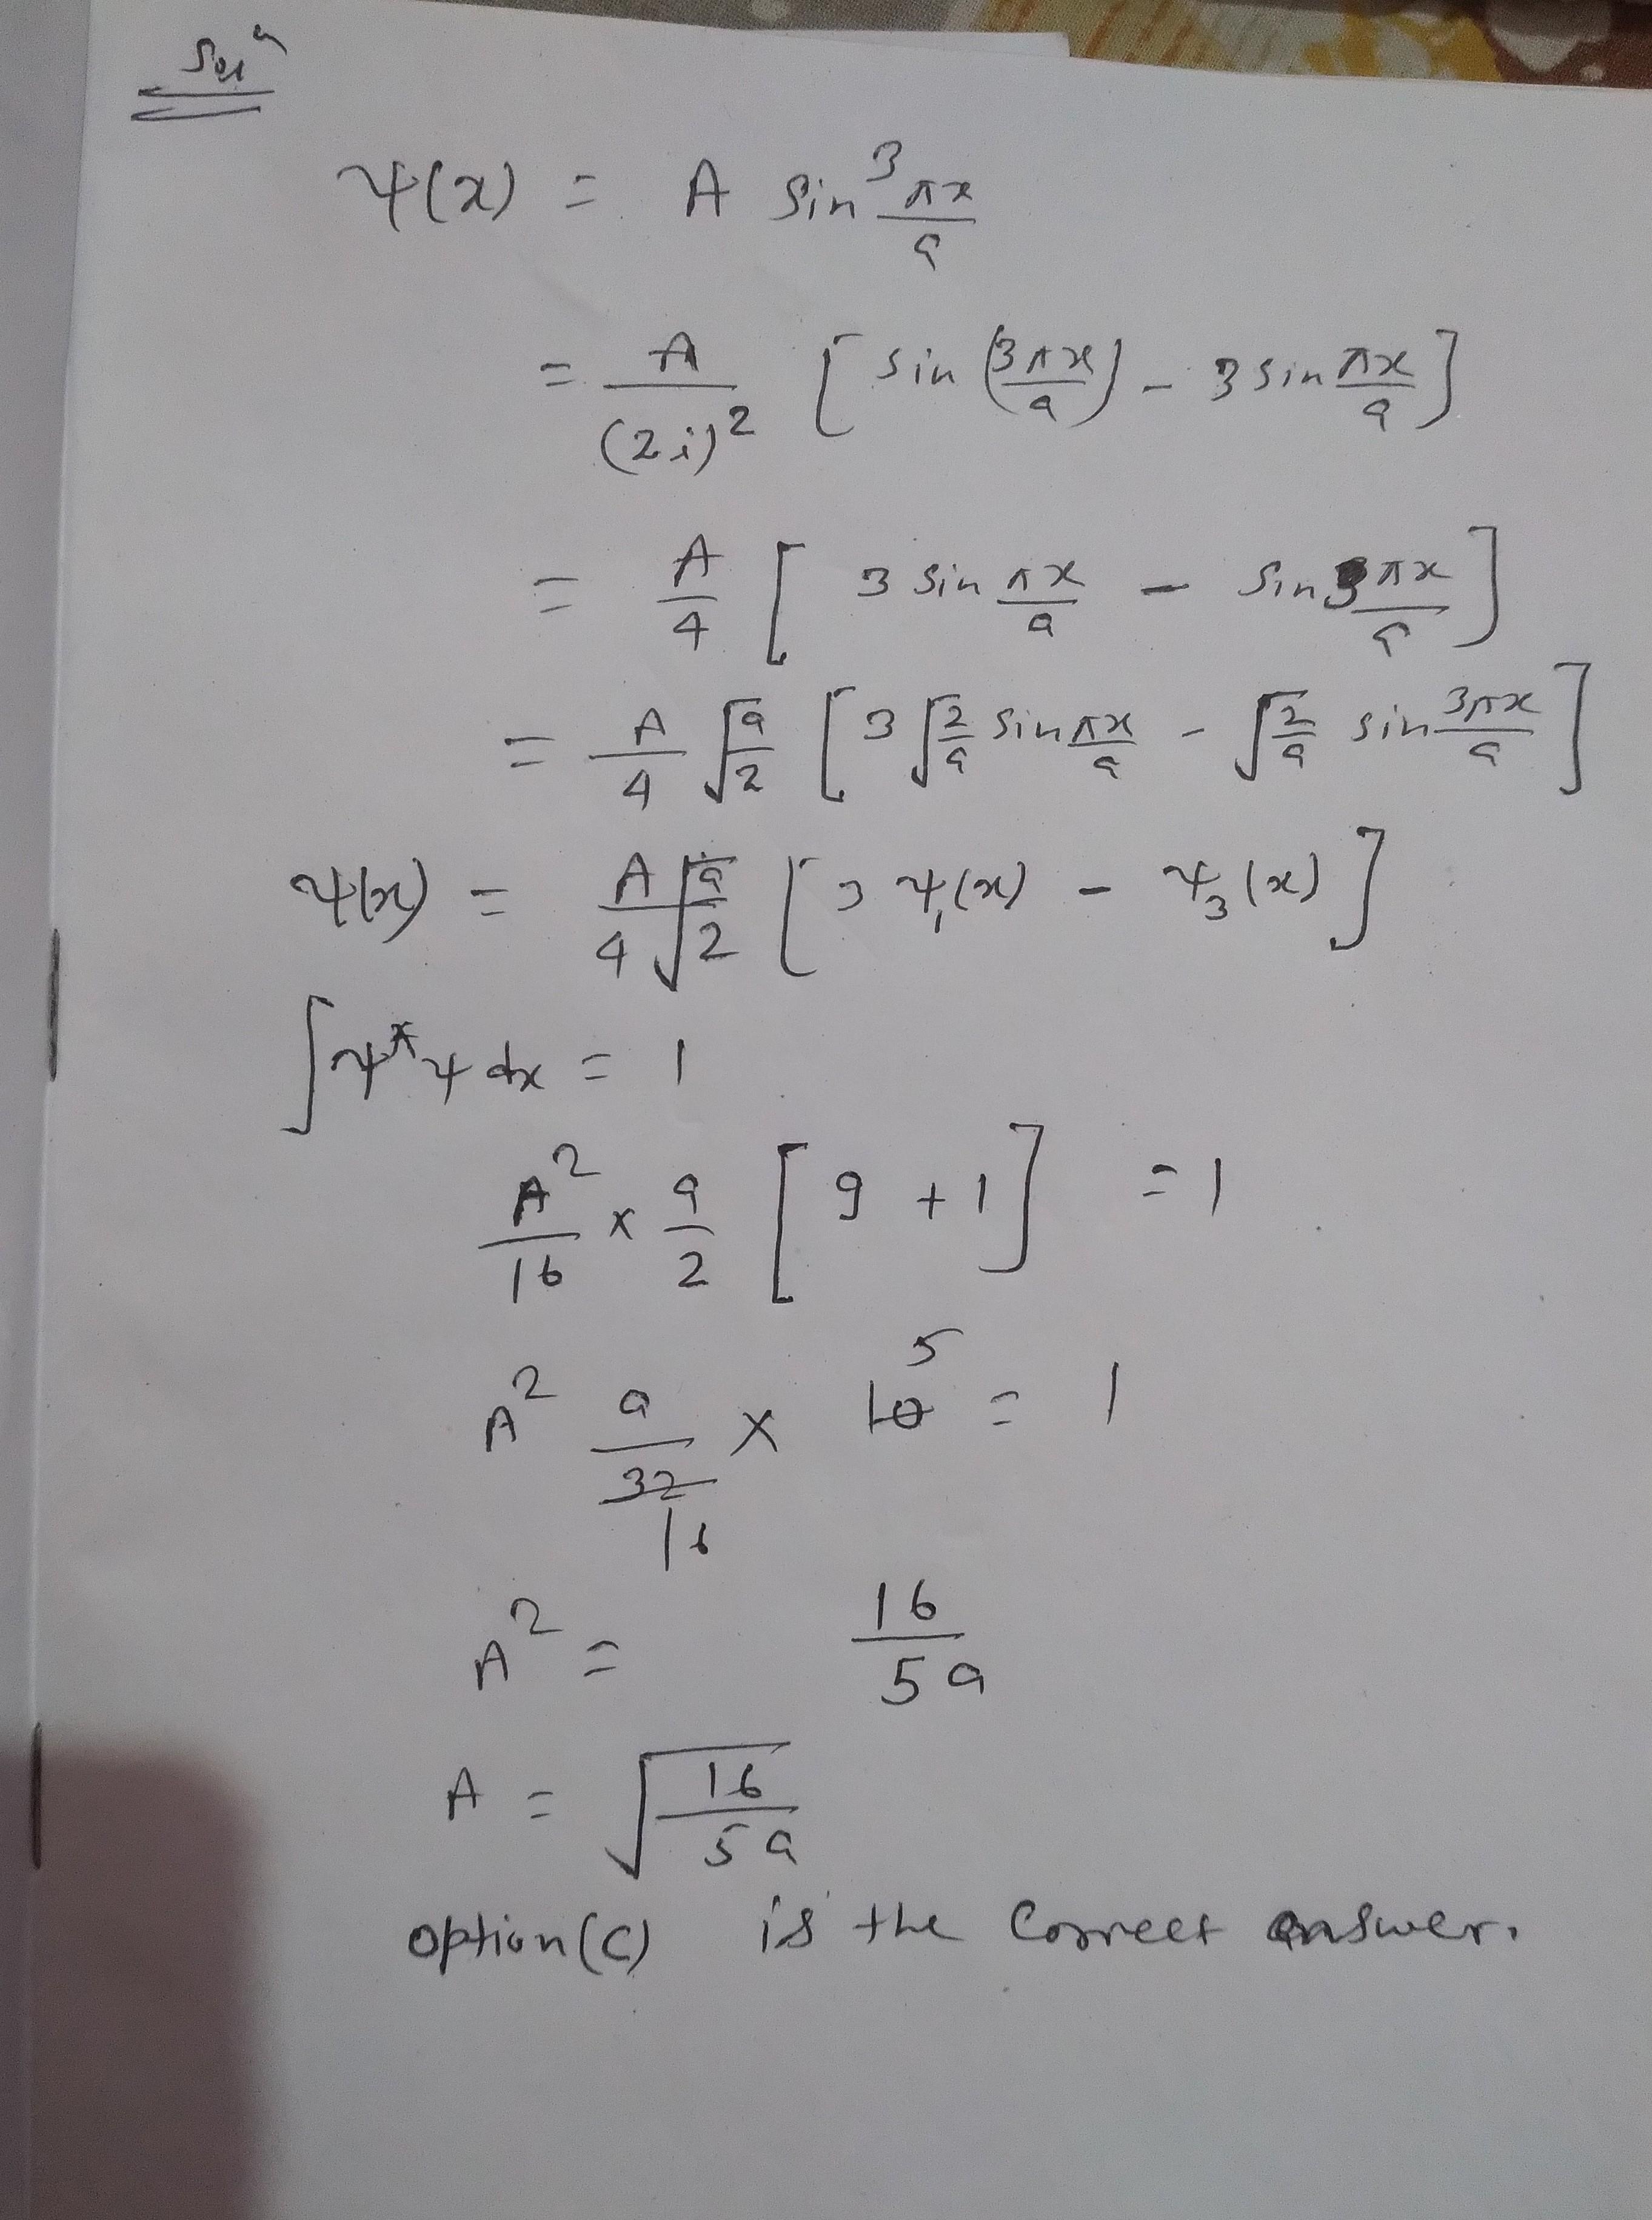 Solⁿ
ψ(x) = A sin³ πx/a
= A/(2i)² [sin (3πx/a) - 3 sin πx/a]
= A/4 [3 sin πx/a - sin 3πx/a]
= A/4 √(a/2) [3 √(2/a) sin πx/a - √(2/a) sin 3πx/a]
ψ(x) = A/4 √(a/2) [3 ψ₁(x) - ψ₃(x)]
∫ψ*ψ dx = 1
A²/16 × a/2 [9 + 1] = 1
A² a/32 16 × 10 5 = 1
A² = 16/5a
A = √(16/5a)
option (C) is the correct answer.